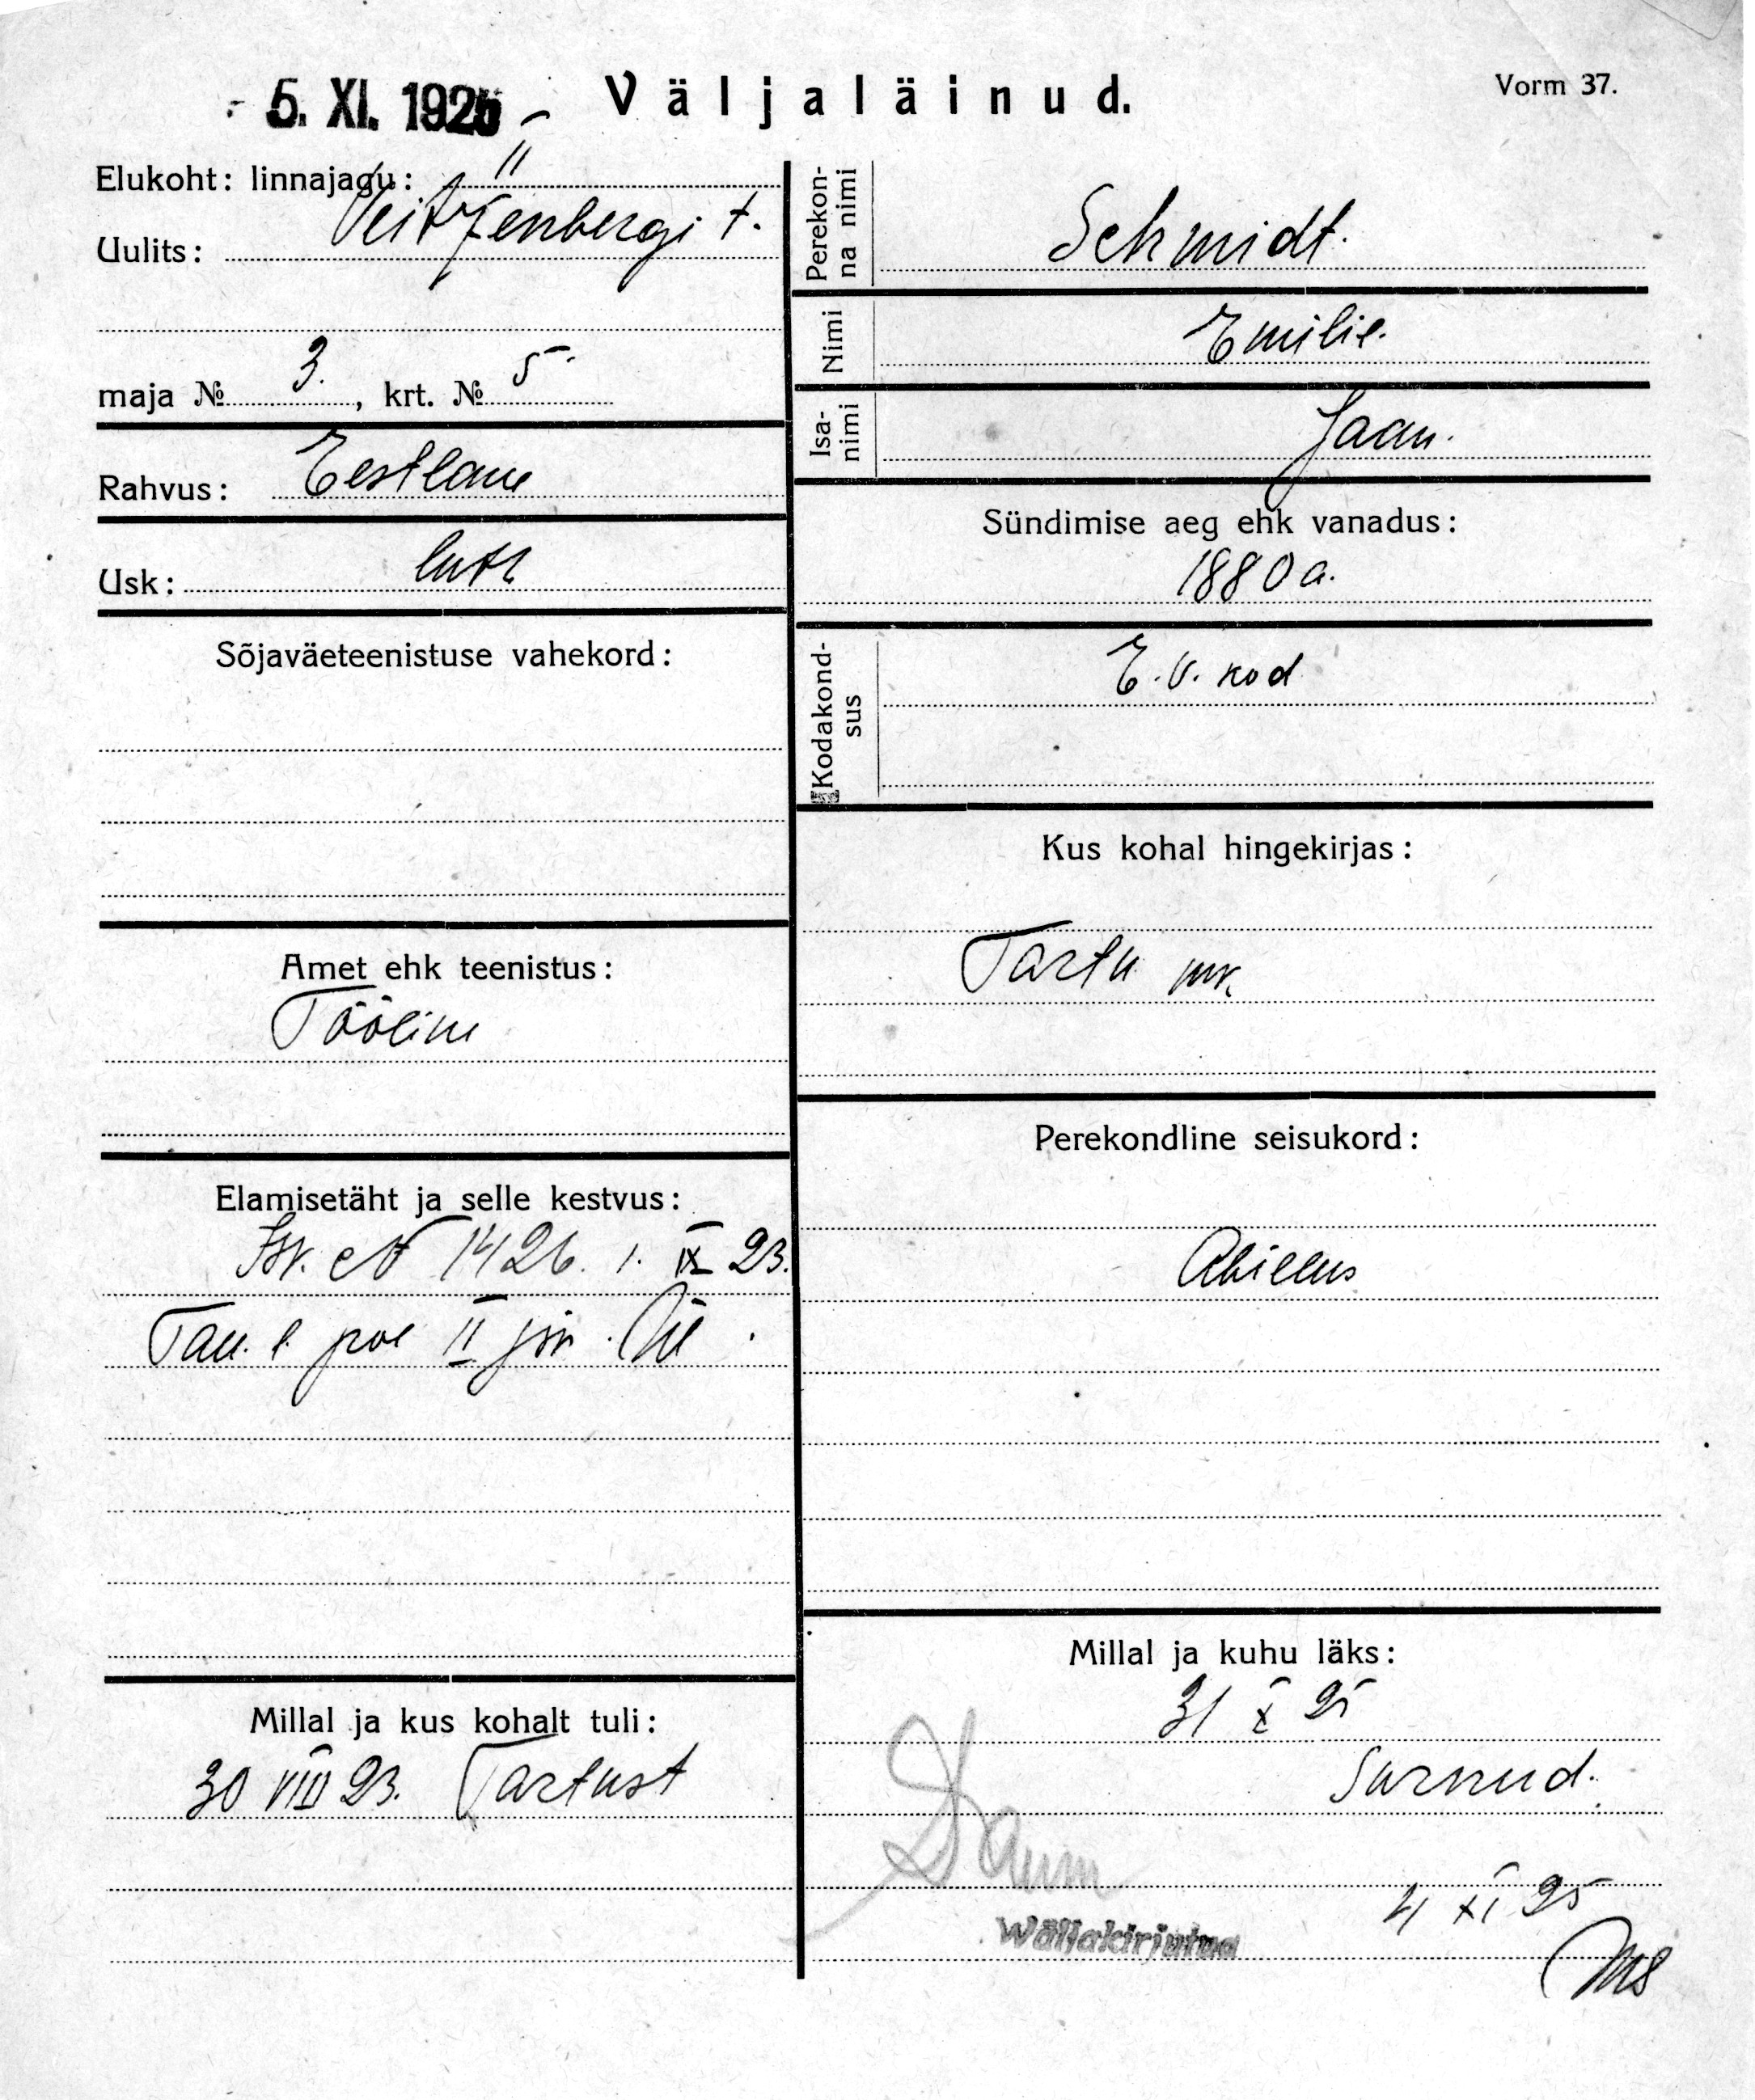 - 5. XI. 1925
Väljaläinud.
Vorm 37.
Elukoht: linnajagu: II
Uulits: Veitzenbergi t.
maja № 3. , krt. № 5.
Rahvus: Eestlane
Usk: luth
Sõjaväeteenistuse vahekord:
Amet ehk teenistus:
Tööline
Elamisetäht ja selle kestvus:
Isv. № 1426. 1. IX 23.
Tall. l. pol II jsk.
Millal ja kus kohalt tuli:
30 VIII 23. Tartust
Perekonna nimi
Schmidt.
Nimi
Emilie.
Isanimi
Jaan.
Sündimise aeg ehk vanadus:
1880 a.
Kodakondsus
E.V. kod
Kus kohal hingekirjas:
Tartu mk.
Perekondline seisukord:
Abielus
Millal ja kuhu läks:
31 X 25
Surnud.
4 XI 25
Wäljakirjutud